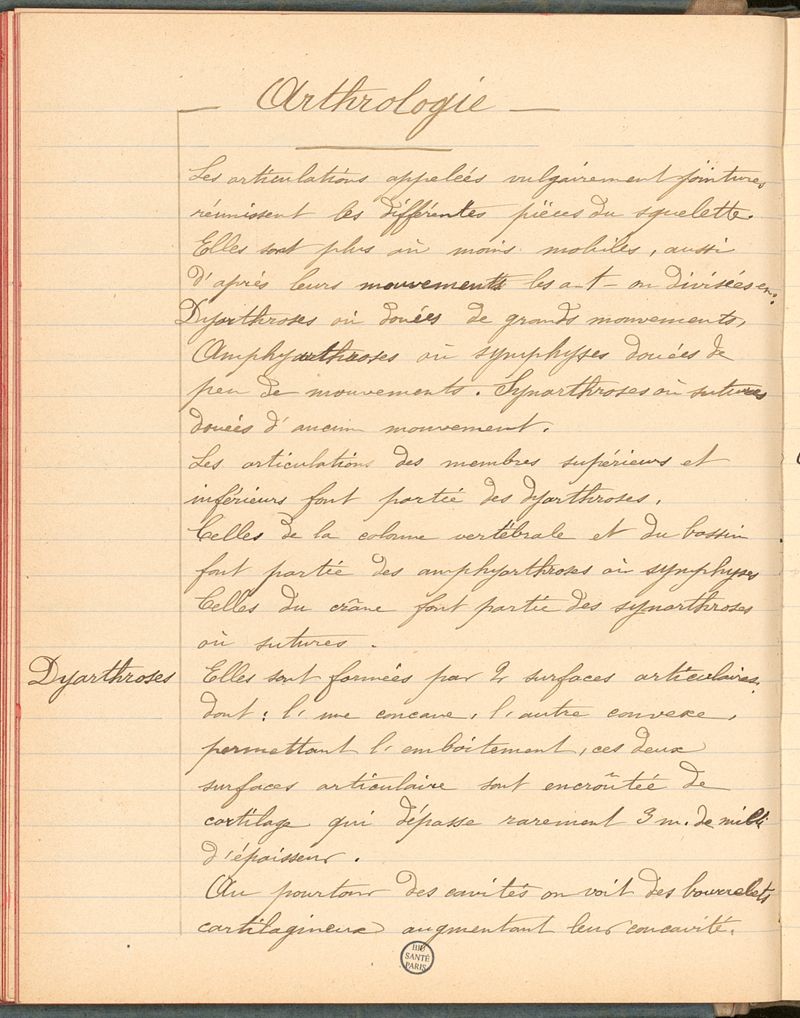 — Arthrologie —
Les articulations appelées vulgairement jointures
réunissent les différentes pièces du squelette.
Elles sont plus où moins mobiles, aussi
d'après leurs mouvements les a-t-on divisées en:
Dyarthroses où douées de grands mouvements,
Amphyarthroses où symphyses douées de
peu de mouvements. Synarthroses où sutures
douées d'aucun mouvement.
Les articulations des membres supérieurs et
inférieurs font partie des dyarthroses.
Celles de la colonne vertébrale et du bassin
font partie des amphyarthroses où symphyses
Celles du crâne font partie des synarthroses
où sutures.
Dyarthroses Elles sont formées par 2 surfaces articulaires.
dont: l'une concave, l'autre convexe,
permettant l'emboitement, ces deux
surfaces articulaire sont encroûtée de
cartilage qui dépasse rarement 3 m. de milli
d'épaisseur.
Au pourtour des cavités on voit des bourrelets
cartilagineux augmentant leur concavité.
BIU
SANTÉ
PARIS